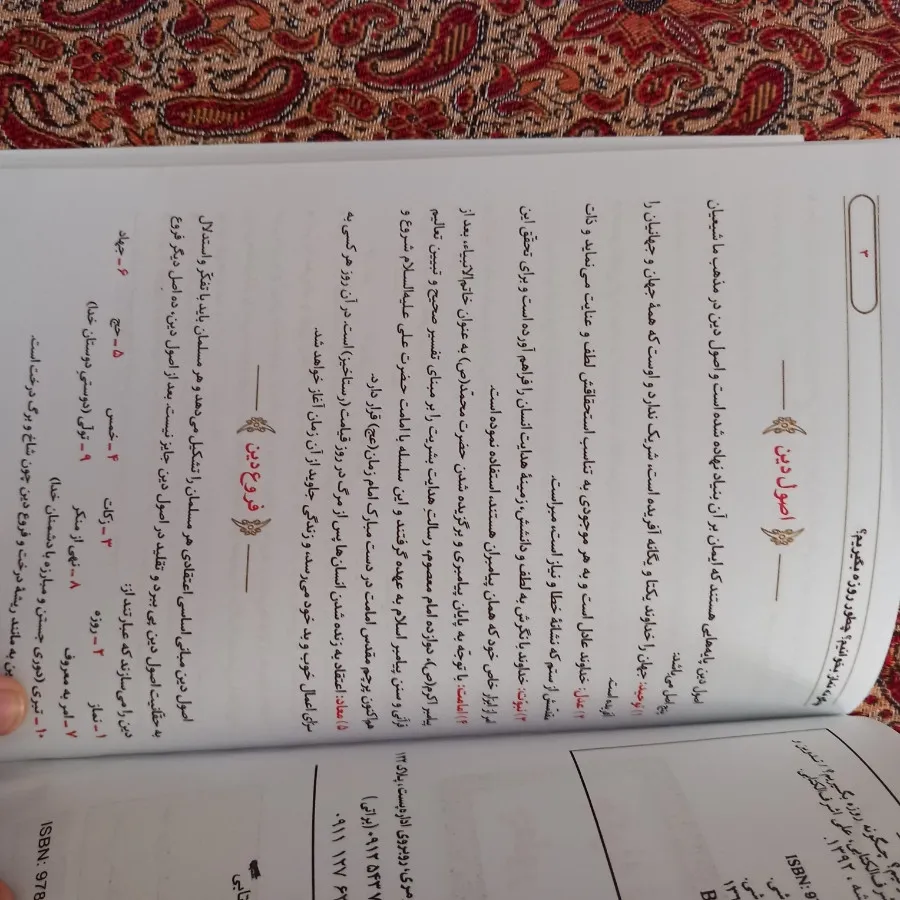 نماز بخوانیم؟ چطور روزه بگیریم؟
۳
اصول دین
اصول دین پایه‌هایی هستند که ایمان بر آن بنیاد نهاده شده است و اصول دین در مذهب ما شیعیان
پنج اصل می‌باشد:
۱) توحید: جهان را خداوند یکتا و یگانه آفریده است، شریک ندارد و اوست که همهٔ جهان و جهانیان را
آفریده است.
۲) عدل: خداوند عادل است و به هر موجودی به تناسب استحقاقش لطف و عنایت می‌نماید و ذات
از ستم که نشانهٔ خطا و نیاز است، مبراست.
۳) نبوت: خداوند با نگرش به لطف و دانشش، زمینهٔ هدایت انسان را فراهم آورده است و برای تحقق این
امر از ابزار خاص خود که همان پیامبران هستند، استفاده نموده است.
۴) امامت: با توجه به پایان پیامبری و برگزیده شدن حضرت محمد(ص) به عنوان خاتم‌الانبیاء، بعد از
پیامبر اکرم(ص)، دوازده امام معصوم، رسالت هدایت بشریت را بر مبنای تفسیر صحیح و تبیین تعالیم
قرآنی و سنن پیامبر اسلام به عهده گرفتند و این سلسله با امامت حضرت علی علیه‌السلام شروع و
هم‌اکنون پرچم مقدس امامت در دست مبارک امام زمان(عج) قرار دارد.
۵) معاد: اعتقاد به زنده شدن انسان‌ها پس از مرگ در روز قیامت (رستاخیز) است. در آن روز هر کسی به
سزای اعمال خوب و بد خود می‌رسد و زندگی جاوید از آن زمان آغاز خواهد شد.
فروع دین
اصول دین مبانی اساسی اعتقادی هر مسلمان را تشکیل می‌دهد و هر مسلمان باید با تفکر و استدلال
به حقانیت اصول دین پی ببرد و تقلید در اصول دین جایز نیست. بعد از اصول دین، ده اصل دیگر فروع
دین را می‌سازند که عبارتند از:
۱ ـ نماز ۲ ـ روزه ۳ ـ زکات ۴ ـ خمس ۵ ـ حج ۶ ـ جهاد
۷ ـ امر به معروف ۸ ـ نهی از منکر ۹ ـ تولّی (دوستیِ دوستان خدا)
۱۰ ـ تبری (دوری جستن و مبارزه با دشمنان خدا)
به مانند ریشهٔ درخت و فروع دین چون شاخ و برگ درخت است.
چگونه روزه بگیریم؟
علی اشرف‌الکتابی
۱۳۹۲
ISBN: 97
روبروی اداره پست، پلاک ۱۲۳
(براتی)
۰۹۱۱ ۱۲۷ ۶۲
ISBN: 978